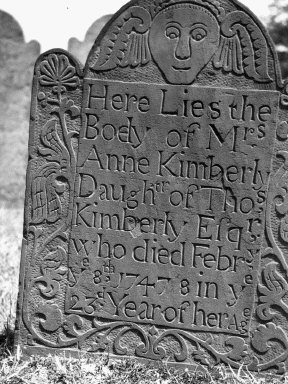 Here Lies the
Body of Mrs
Anne Kimberly
Daughtr of Thos
Kimberly Esqr
who died Febry
ye 8th 1747 8 in ye
23d Year of her Age